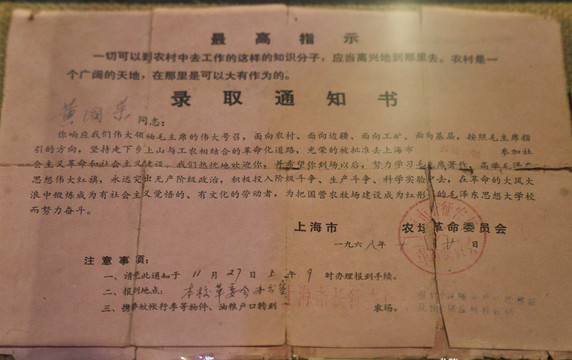 最高指示
一切可以到农村中去工作的这样的知识分子，应当高兴地到那里去。农村是一
个广阔的天地，在那里是可以大有作为的。
录取通知书
黄国 同志：
你响应我们伟大领袖毛主席的伟大号召，面向农村、面向边疆、面向工矿、面向基层，按照毛主席指
引的方向，坚持走下乡上山与工农相结合的革命化道路，光荣的被批准去上海市 参加社
会主义革命和社会主义建设。我们热忱地欢迎你，并希望你到场以后，努力学习毛主席著作，高举毛泽东
思想伟大红旗，永远突出无产阶级政治，积极投入阶级斗争、生产斗争、科学实验中去，在革命的大风大
浪中锻炼成为有社会主义觉悟的、有文化的劳动者，为把国营农牧场建设成为红彤彤的毛泽东思想大学校
而努力奋斗。
上海市 农场革命委员会
一九六八年 月 日
注意事项：
一、请凭此通知于11月27日上午9时办理报到手续。
二、报到地点：本校革委会办公室
三、携带蚊帐行李等物件、油粮户口转到 农场。